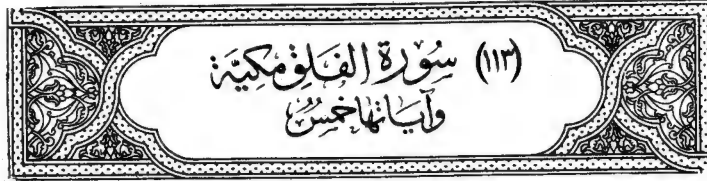 (١١٣) سُورَة الفَلَق مَكيَّة
وَآيَاتهَا خَمسٌ